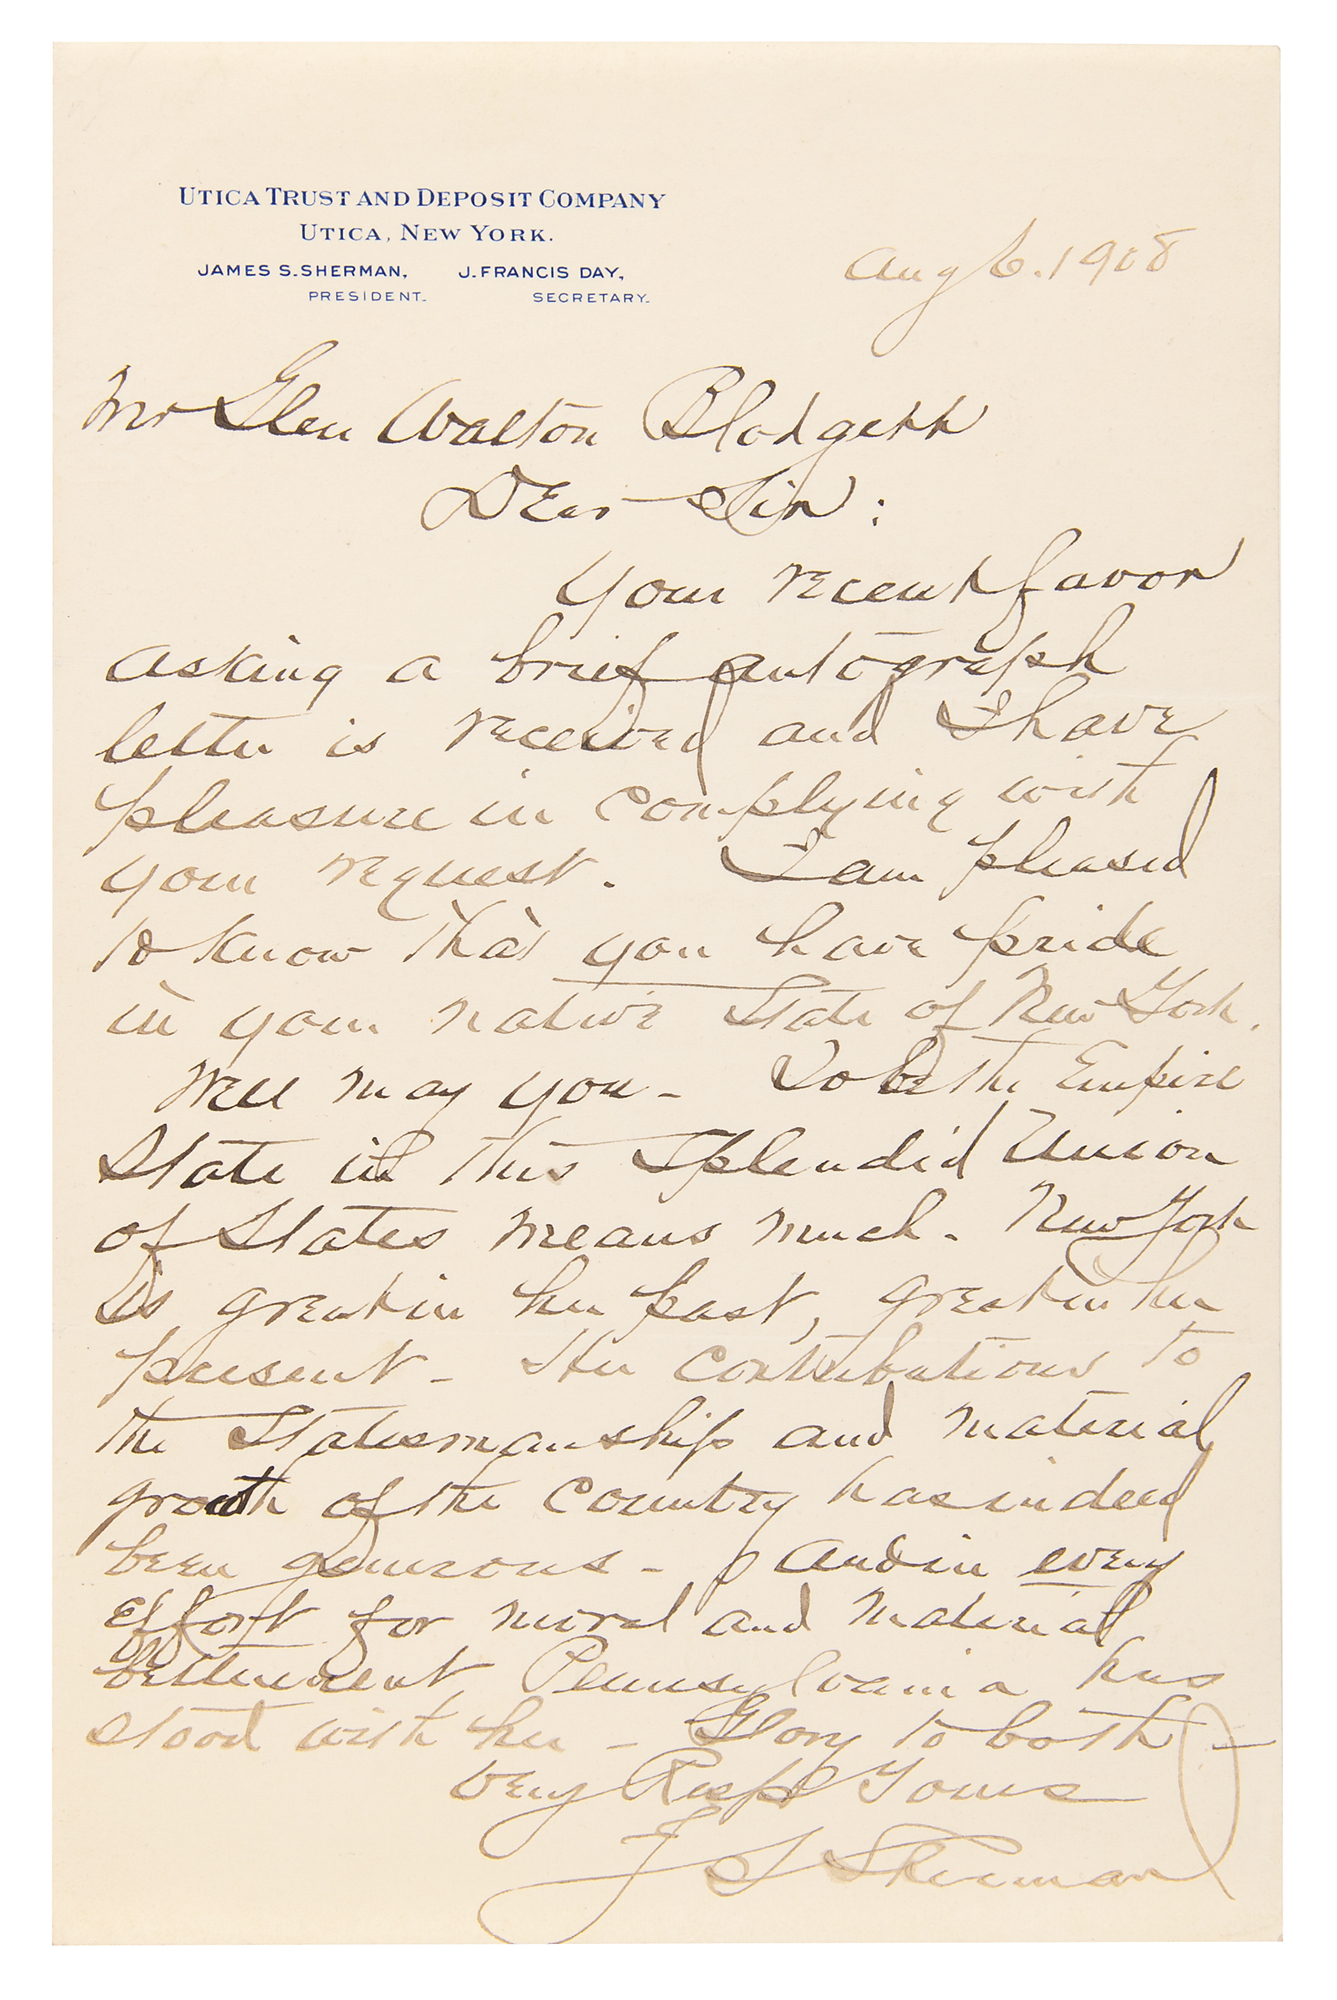 UTICA TRUST AND DEPOSIT COMPANY
UTICA, NEW YORK.
JAMES S. SHERMAN, J. FRANCIS DAY,
PRESIDENT. SECRETARY.
Aug 6. 1908
Mr Glen Walton Blodgett
Dear Sir:
Your recent favor
asking a brief autograph
letter is received and I have
pleasure in complying with
your request. I am pleased
to know that you have pride
in your native State of New York.
Well may you - To be the Empire
State in this splendid Union
of States means much. New York
is great in her past, great in her
present - Her contributions to
the Statesmanship and material
growth of the Country has indeed
been generous - And in every
effort for moral and material
betterment, Pennsylvania has
stood with her - Glory to both -
Very Resp Yours
J S Sherman